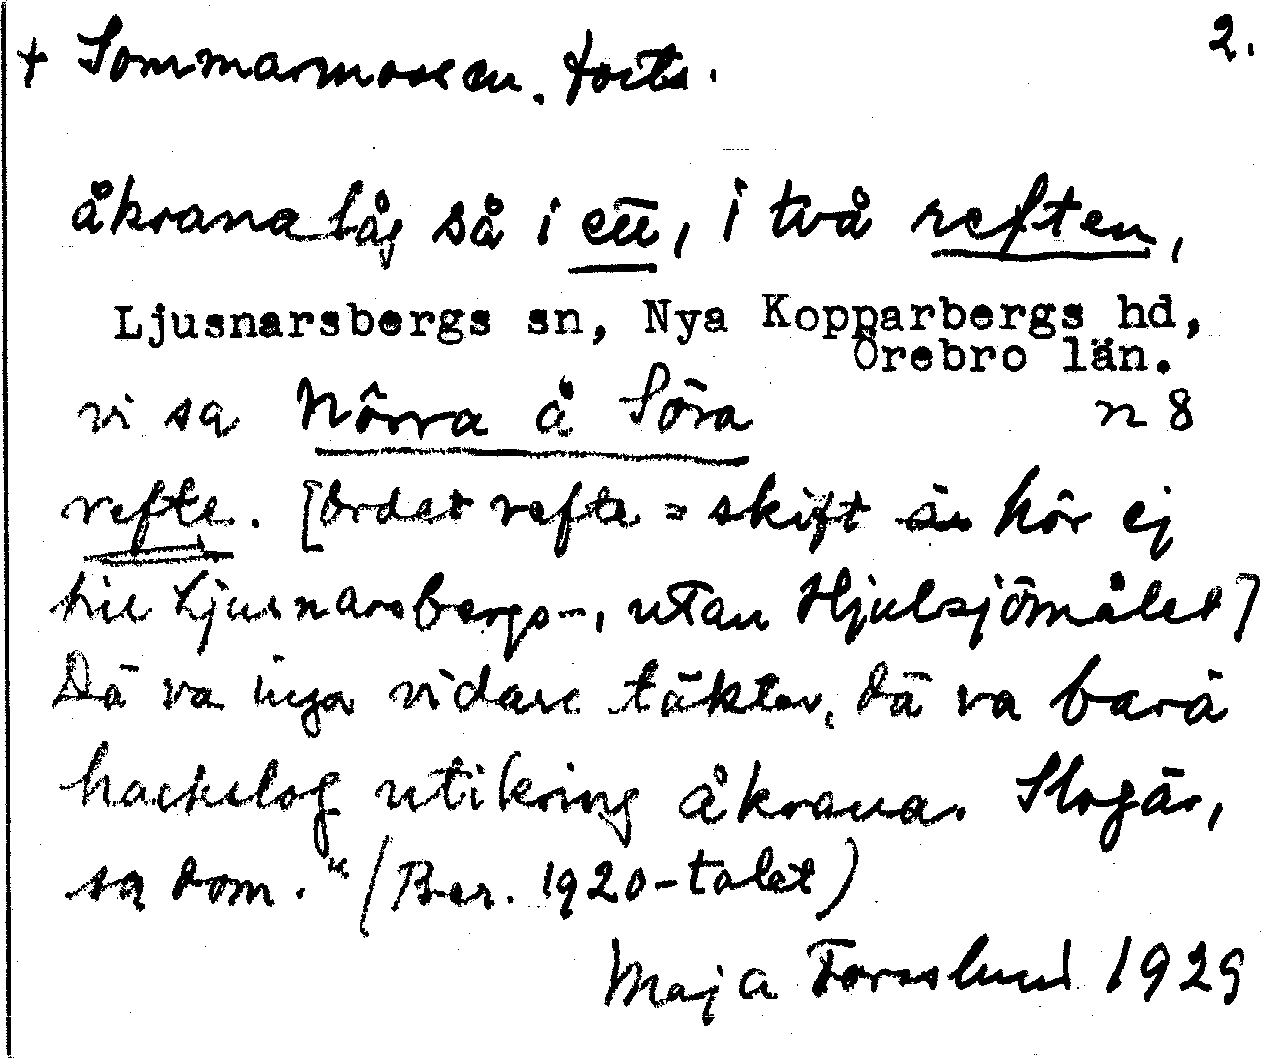 + Sommarmossen. forts. 2.
åkrana låg så i ett, i två reften,
Ljusnarsbergs sn, Nya Kopparbergs hd,
Örebro län.
vi sa Nôrra å Sôra n 8
refte. [Ordet refte = skift är hör ej
till Ljusnarsbergs-, utan Hjulsjömålet]
Dä va inga vidare täkter, dä va barä
hackslog utikring åkrana. Slogär,
sa dom." (Ber. 1920-talet)
Maja Forsslund 1929